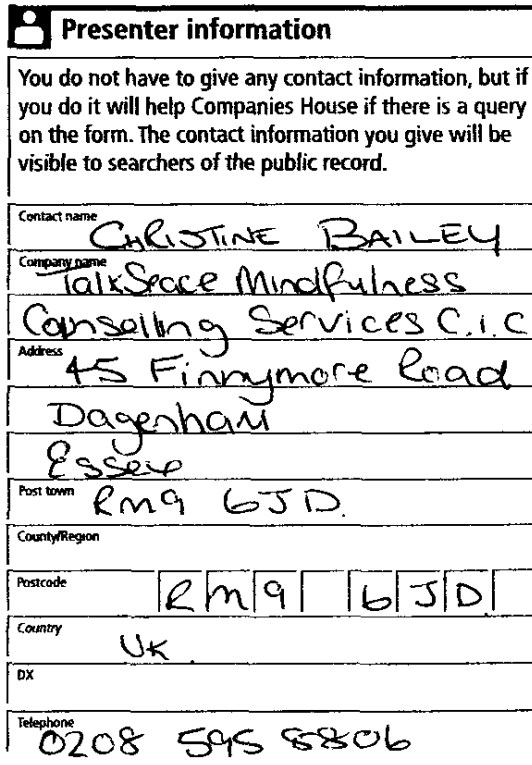 Presenter information
You do not have to give any contact information, but if
you do it will help Companies House if there is a query
on the form. The contact information you give will be
visible to searchers of the public record.
Contact name
CHRISTINE BAILEY
Company name
TalkSpace Mindfulness
Counselling Services C.i.C
Address
45 Finnymore Road
Dagenham
Essex
Post town
RM9 6JD.
County/Region
Postcode
RM9 6JD
Country
UK.
DX
Telephone
0208 595 8806